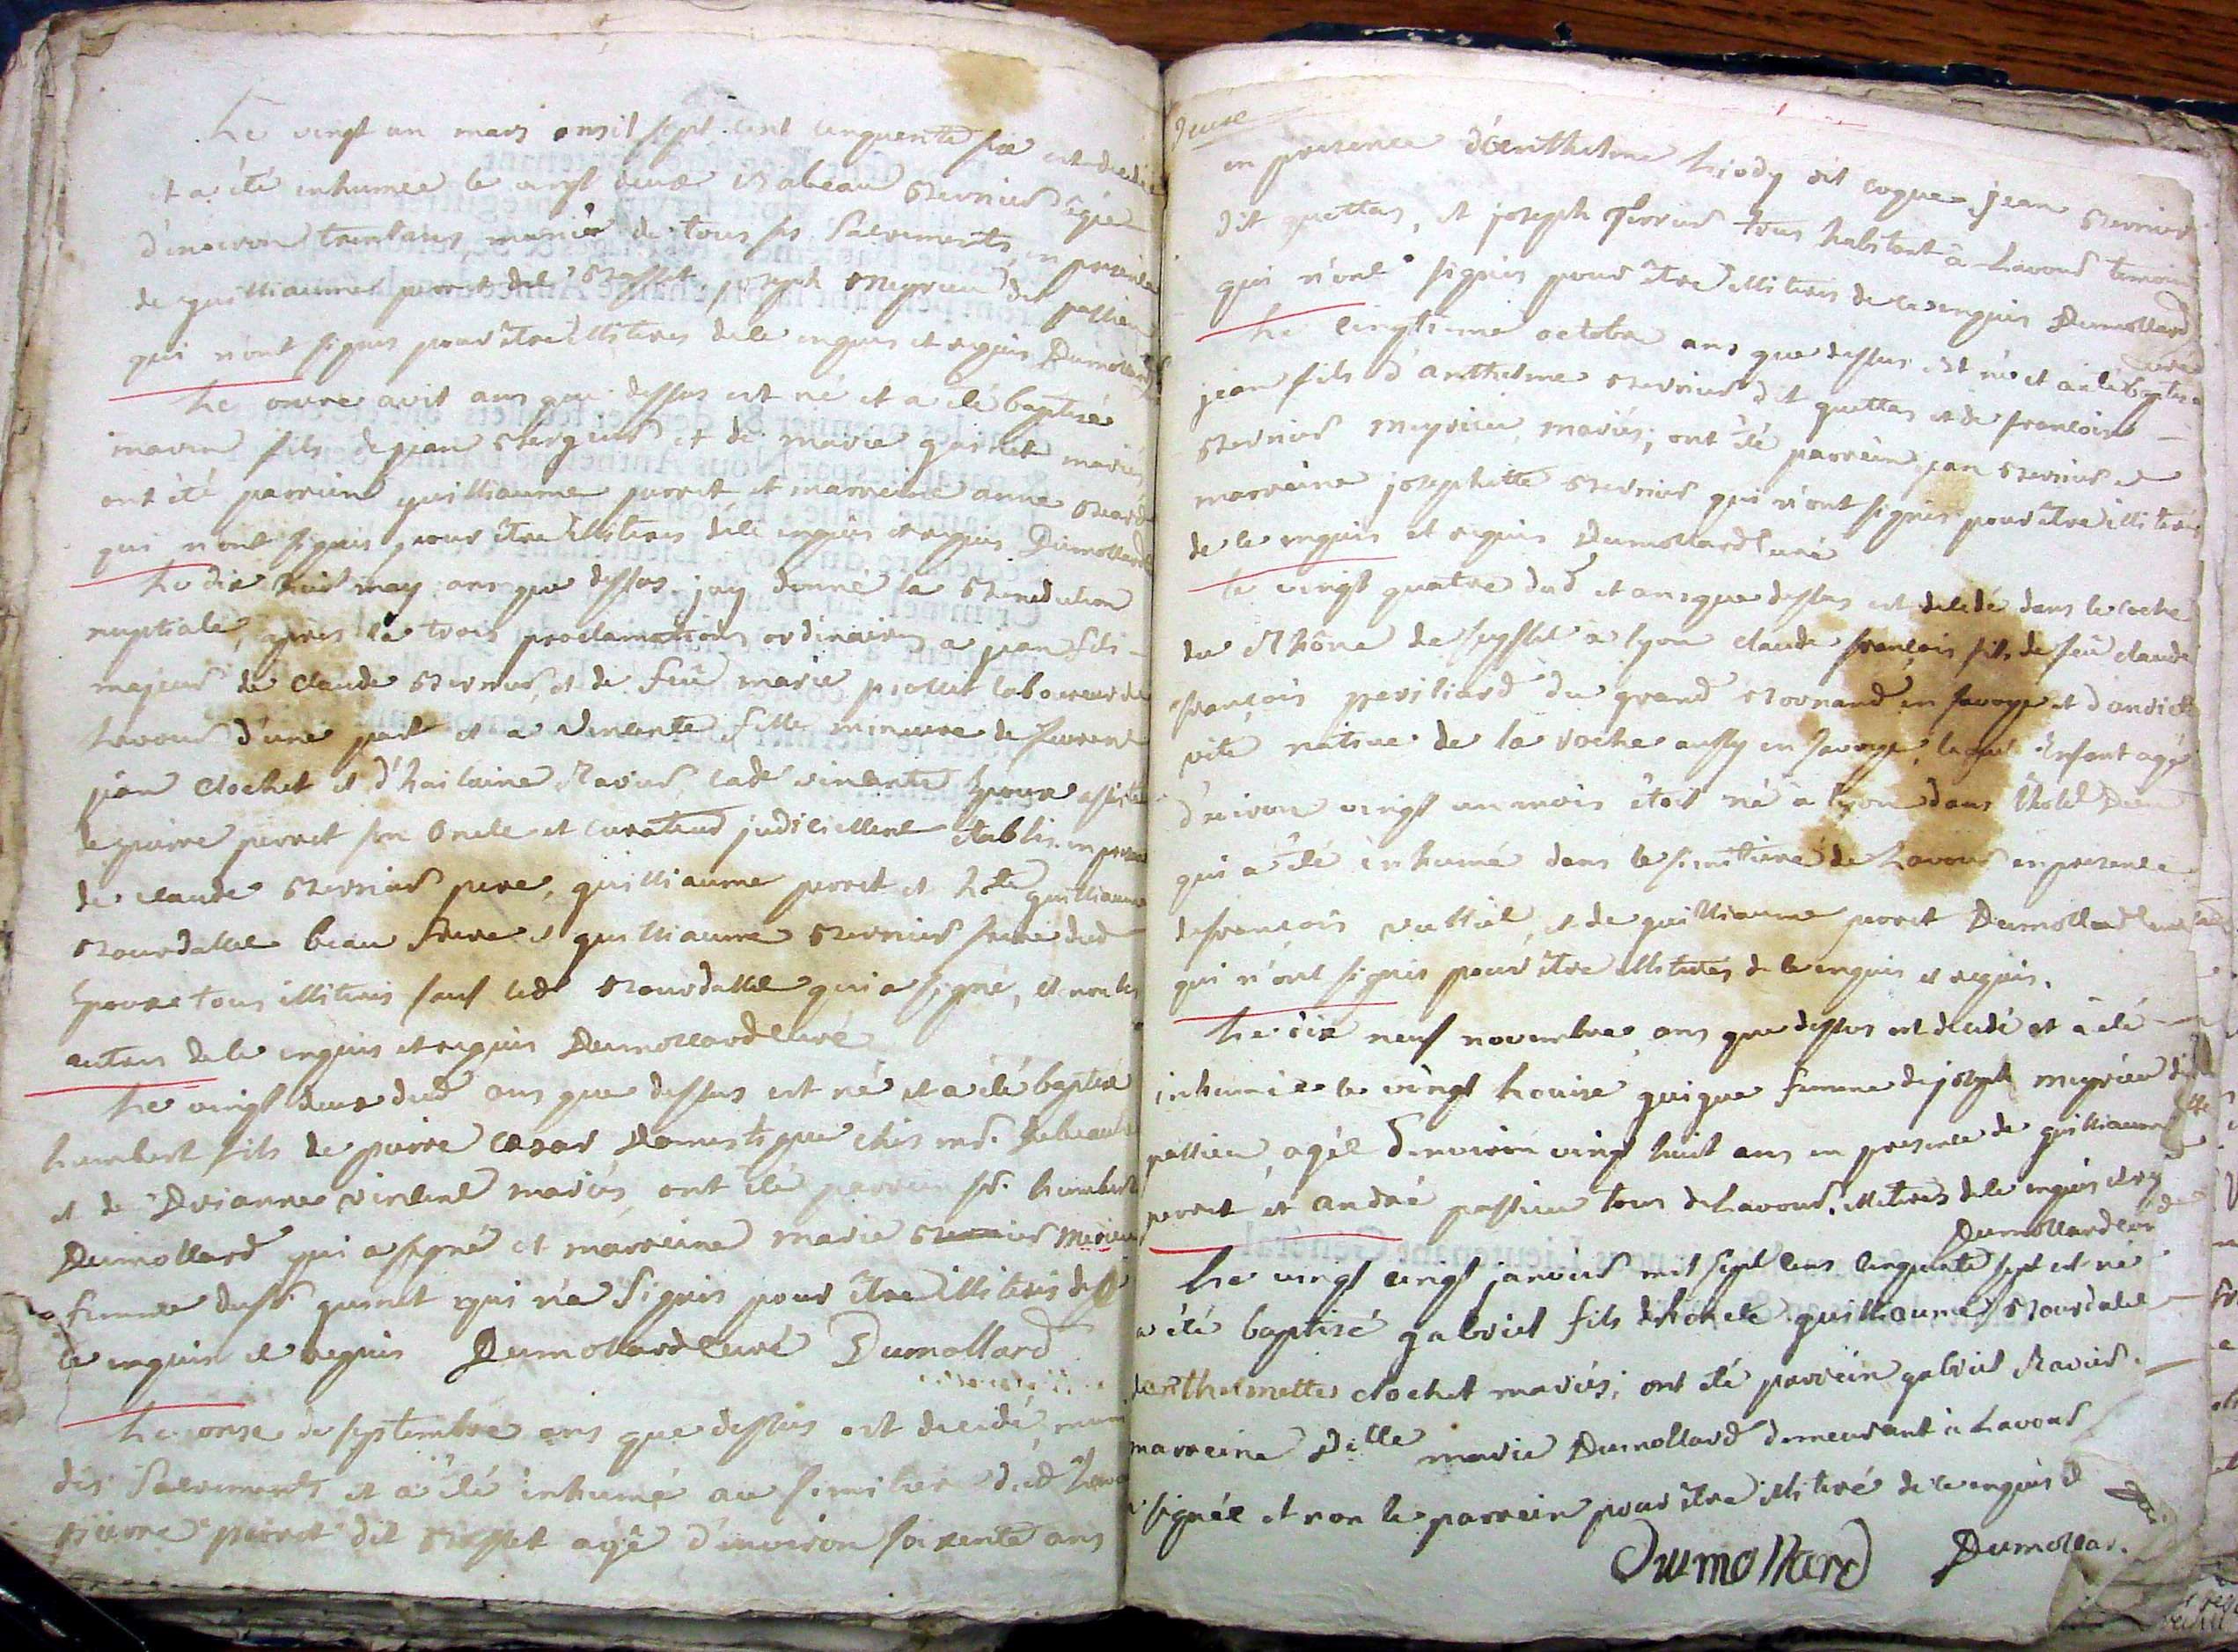 Le vingt un mars mil sept cent cinquente six est decedée
et a été inhumée le vingt deux isabeau Bernier agée
d'environ trent ans, munie de tous ses Sacrements, en presence
de guilliaume perret dit Bosset, joseph Meyrieu de passieu
qui n'ont signés pour être illiteres de ce enquis et requis Dumollard
Le onze avit ans que dessus est né et a été baptisé
fils de jean Bergier et de marie gannet mariés
ont été parrein guilliaume perret et marreine anne
qui n'ont signés pour être illiteres de ce enquis et requis Dumollard
Le dix huit may ans que dessus jay donné la Benediction
nuptiale, apres les trois proclamations ordinaires a jean fils
majeur de claude Bernier, et de feû marie laboureur de
Lavour d'une part et a vincente fille mineure de
jean clochet et d'huilaine Ravier, lade vincente Epouse assistée
de pierre perret son oncle et curateur judiciellent établis. en presence
de claude Bernier pere, guilliaume perret et hte guilliaume
Bourdallet beau frere et guilliaume Bernier frere dud
Epoux tous illiteris sauf led Bourdallet qui a signé, et non les
autres de ce enquis et requis Dumollard Curé
Le vingt deux dud ans que dessus est né et a été baptisé
humbert fils de pierre cesar domestique chés mr.
et de Driane vincent mariés, ont été parrein sr. humbert
Dumollard qui a signé et marreine marie Meri
femme dusr guinet qui n'a signés pour être illiteris de
ce enquis et requis Dumollard Curé Dumollard
Le onse de septembre ans que dessus est decidé, muni
des Sacrements et a été inhumé au simitier dud Lavour
pierre perret dit Bosset agé d'environ soixente ans
en presence d'Anthelme Liody dit coque, jean Bernier
dit guettas, et joseph tous habitant à Lavour temoins
qui n'ont signés pour être illiteres de ce enquis Dumollard
curé
Le cinqtième octobre ans que dessus est né et a été baptisé
jean fils d'anthelme Bernier dit guettas et de francoise
Bernier Meyrieu, mariés; ont été parrein jean Bernier et
marreine josephitte Bernier qui n'ont signés pour être illiterés
de ce enquis et requis Dumollard Curé
Le vingt quatre dud et ans que dessus est decedé dans le coche
du Rhône de seyssel a lyon claude françois fils de feû claude
françois periliard du grand Bornand en savoye et d'
vite native de la roche aussy en savoye, lequel Enfant agé
d'environ vingt un mois étoit né a lyon dans l'hotel Dieu
qui a été inhumé dans le simitiere de Lavour en presence
de françois vuttiel, et de guilliaume perret Dumollard curé
qui n'ont signés pour être illiteres de ce enquis et requis.
Le dix neuf novembre ans que dessus est decedé et a été
inhumée le vingt Louise guigue femme de joseph meyrieu dit
passieu, agée d'environ vingt huit ans en presence de guilliaume
perret et andré passieu tous de Lavour. illiteres de ce enquis et
Dumollard curé
Le vingt cinq janvier mil sept cens cinquente sept est né
a été baptisé gabriel fils d'honete guilliaume Bourdallet
danthelmette clochet mariés; ont été parrein gabriel Ravier.
marreine Dlle marie Dumollard demeurant à Lavour
signée et non le parrein pour être illiteré de ce enquis et
Dumollard Dumollar